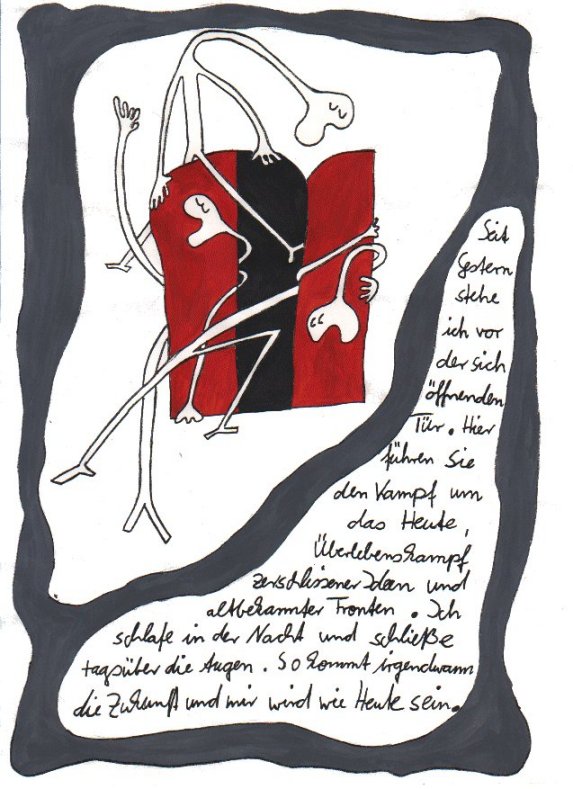 Seit
gestern
stehe
ich vor
der sich
öffnenden
Tür. Hier
führen sie
den Kampf um
das Heute,
Überlebenskampf
zerschlissener Ideen und
altbekannter Fronten. Ich
schlafe in der Nacht und schließe
tagsüber die Augen. So kommt irgendwann
die Zukunft und mir wird wie Heute sein.